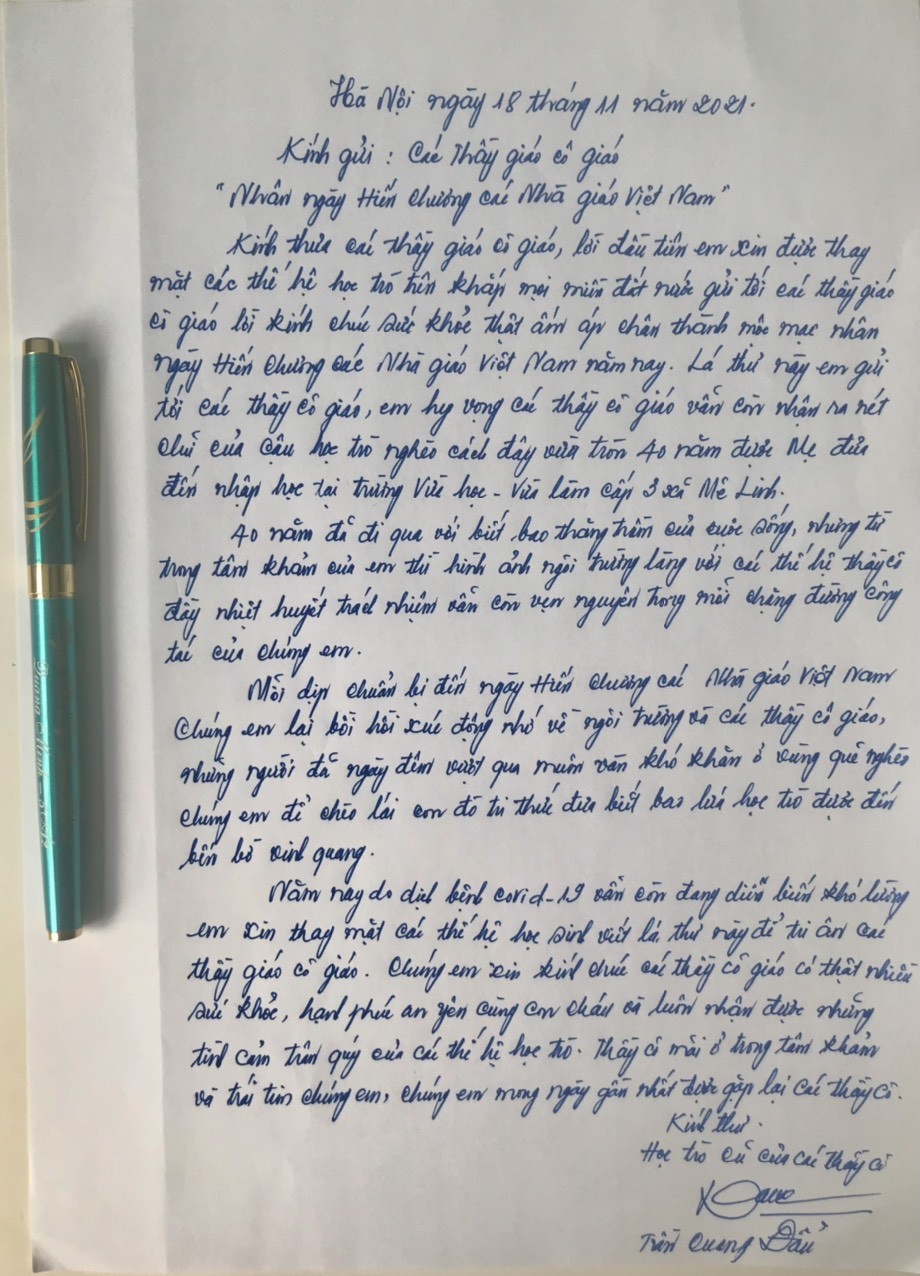 Hà Nội ngày 18 tháng 11 năm 2021.
Kính gửi : Các Thầy giáo cô giáo
"Nhân ngày Hiến chương các Nhà giáo Việt Nam"
Kính thưa các thầy giáo cô giáo, lời đầu tiên em xin được thay
mặt các thế hệ học trò trên khắp mọi miền đất nước gửi tới các thầy giáo
cô giáo lời kính chúc sức khỏe thật ấm áp chân thành mộc mạc nhân
ngày Hiến chương các Nhà giáo Việt Nam năm nay. Lá thư này em gửi
tới các thầy cô giáo, em hy vọng các thầy cô giáo vẫn còn nhận ra nét
chữ của cậu học trò nghèo cách đây vừa tròn 40 năm được Mẹ đưa
đến nhập học tại trường Vừa học - Vừa làm cấp 3 xã Mê Linh.
40 năm đã đi qua với biết bao thăng trầm của cuộc sống, nhưng từ
trong tâm khảm của em thì hình ảnh ngôi trường làng với các thế hệ thầy cô
đầy nhiệt huyết trách nhiệm vẫn còn vẹn nguyên trong mỗi chặng đường công
tác của chúng em.
Mỗi dịp chuẩn bị đến ngày Hiến chương các Nhà giáo Việt Nam
Chúng em lại bồi hồi xúc động nhớ về ngôi trường và các thầy cô giáo,
những người đã ngày đêm vượt qua muôn vàn khó khăn ở vùng quê nghèo
chúng em để chèo lái con đò tri thức đưa biết bao lứa học trò được đến
bến bờ vinh quang.
Năm nay do dịch bệnh covid-19 vẫn còn đang diễn biến khó lường
em xin thay mặt các thế hệ học sinh viết lá thư này để tri ân các
thầy giáo cô giáo. Chúng em xin kính chúc các thầy cô giáo có thật nhiều
sức khỏe, hạnh phúc an yên cùng con cháu và luôn nhận được những
tình cảm trân quý của các thế hệ học trò. Thầy cô mãi ở trong tâm khảm
và trái tim chúng em, chúng em mong ngày gần nhất được gặp lại các thầy cô.
Kính thư.
Học trò cũ của các thầy cô
Trần Quang Đẩu